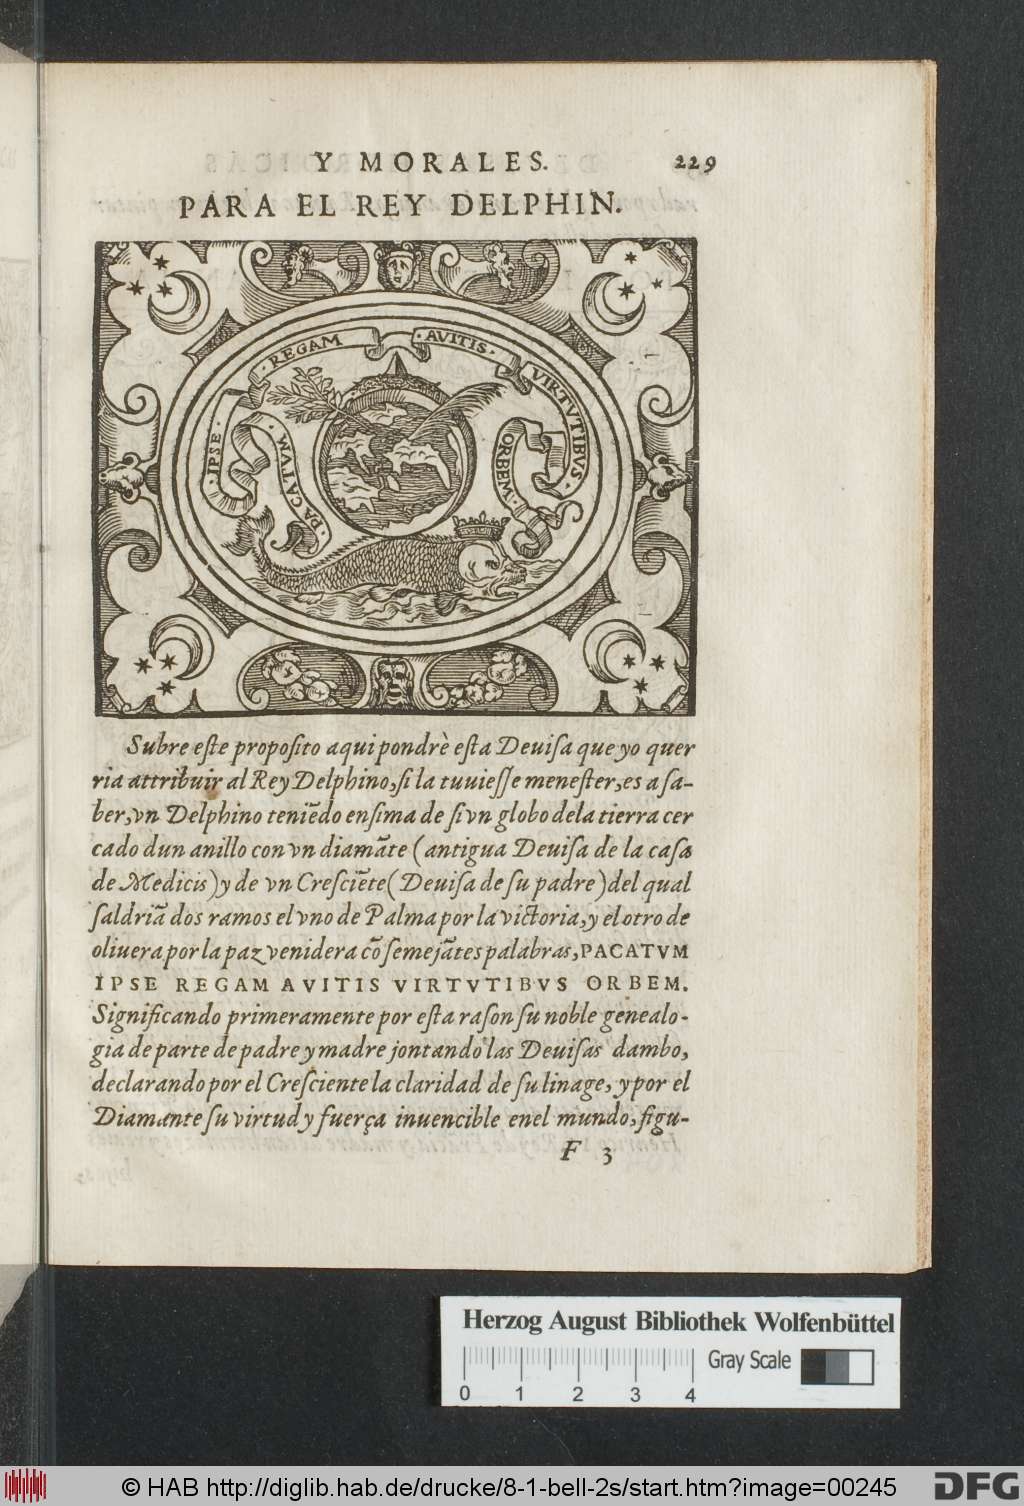 Y MORALES. 229
PARA EL REY DELPHIN.
IPSE · REGAM · AVITIS · VIRTVTIBVS ·
PACATVM · ORBEM ·
Subre eſte propoſito aqui pondrè eſta Deuiſa que yo quer
ria attribuir al Rey Delphino, ſi la tuuieſſe meneſter, es a ſa-
ber, vn Delphino teniẽdo enſima de ſi vn globo dela tierra cer
cado dun anillo con vn diamãte (antigua Deuiſa de la caſa
de Medicis) y de vn Creſciẽte (Deuiſa de su padre) del qual
ſaldriã dos ramos el vno de Palma por la victoria, y el otro de
oliuera por la paz venidera cõ ſemejãtes palabras, PACATVM
IPSE REGAM AVITIS VIRTVTIBVS ORBEM.
Significando primeramente por eſta raſon ſu noble genealo-
gia de parte de padre y madre jontando las Deuiſas dambo,
declarando por el Creſciente la claridad de ſu linage, y por el
Diamante ſu virtud y fuerça inuencible enel mundo, figu-
F 3
Herzog August Bibliothek Wolfenbüttel
Gray Scale
0 1 2 3 4
© HAB http://diglib.hab.de/drucke/8-1-bell-2s/start.htm?image=00245
DFG